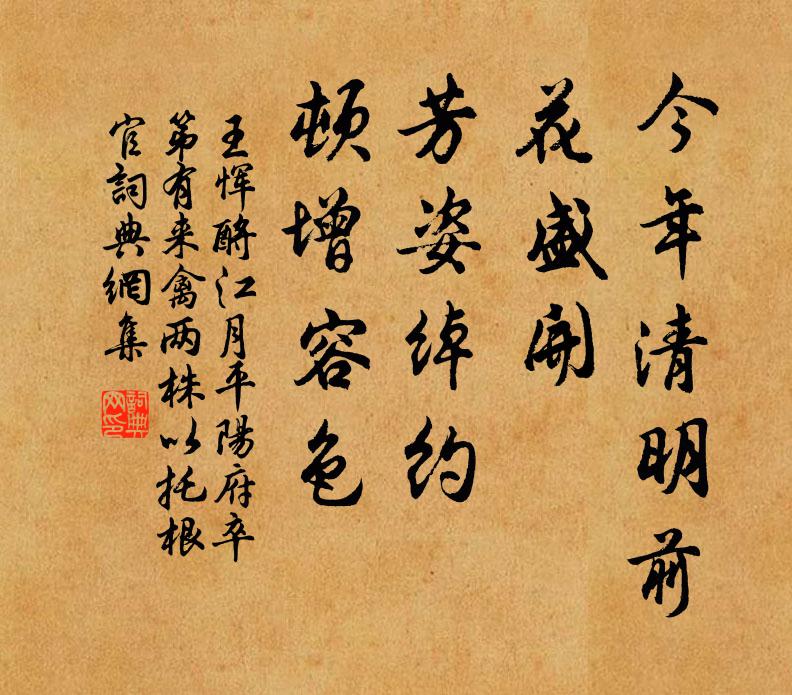 今年清明前
花盛開
芳姿綽约
頓增容色
王惲酹江月平陽府卒
第有来禽两株以托根
官詞典網集
詞典
网印